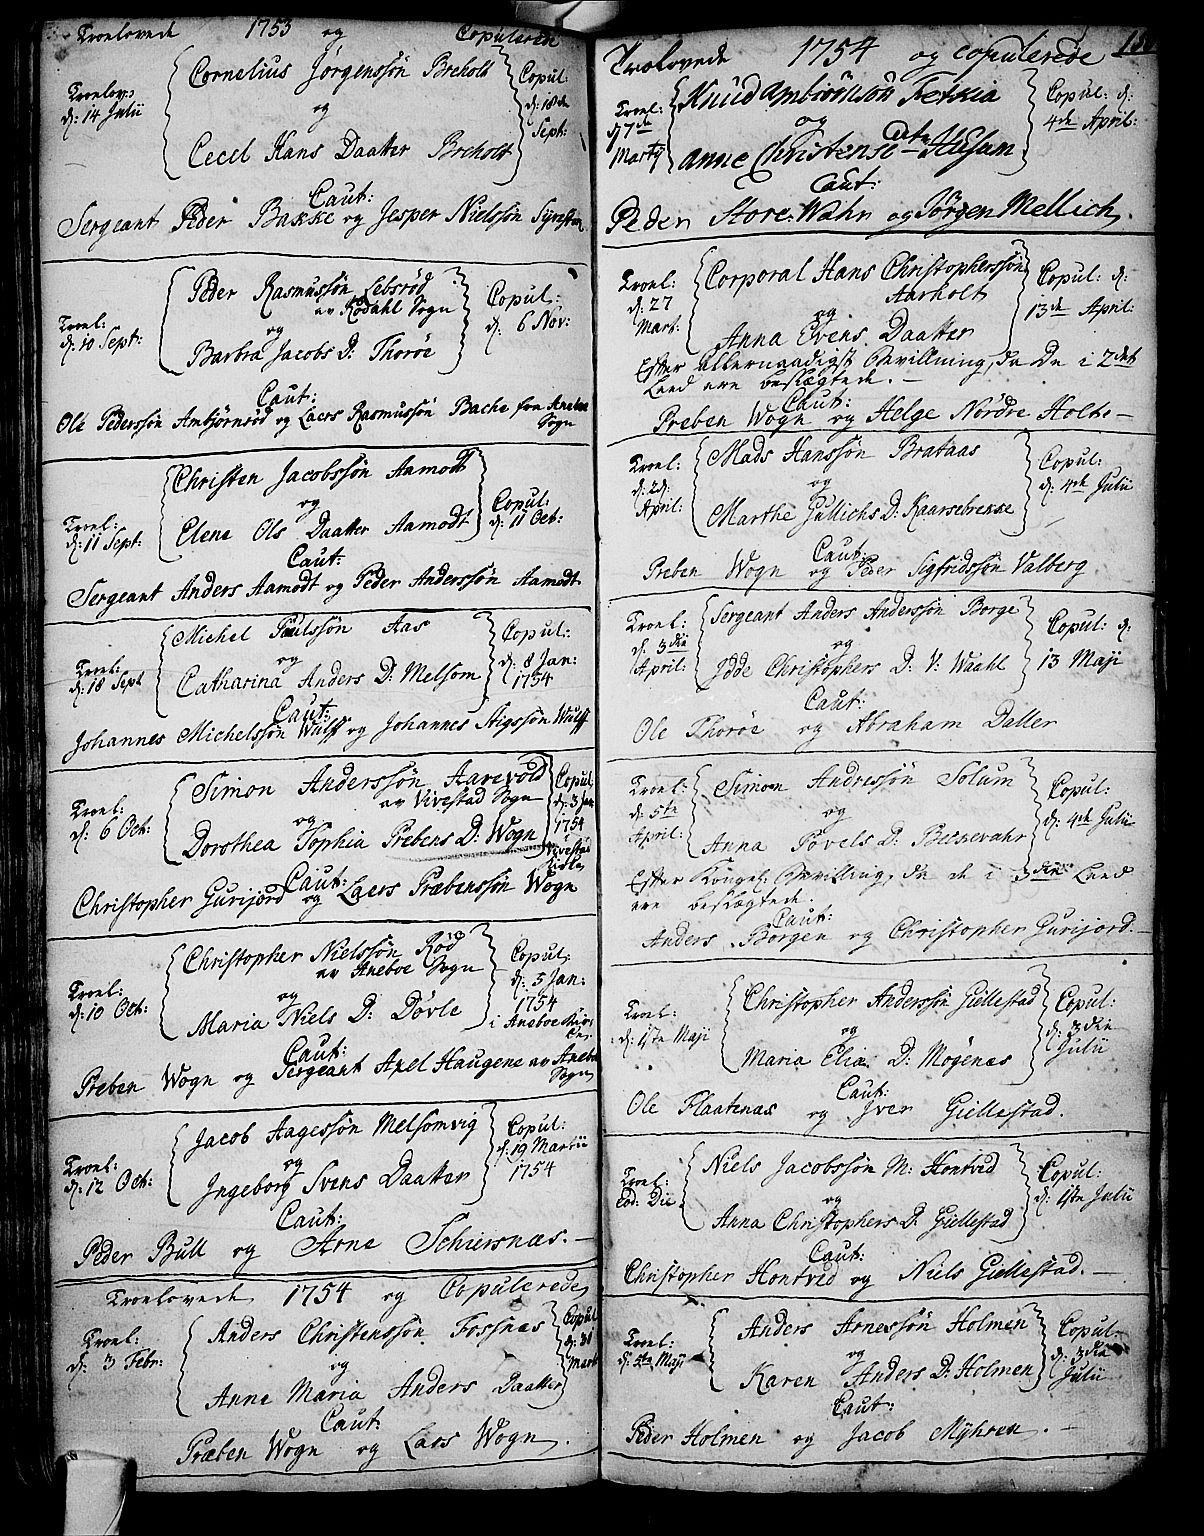 Troelovede 1753 og Copulerede
Troelov:
d: 14 Julii
Cornelius Jørgenssøn Breholt
og
Cecel Hans Daatter Breholt
Copul:
d: 18de
Sept:
Caut:
Sergeant Peder Bakke og Jesper Nielssøn
Troel:
d: 10 Sept:
Peder Rasmussøn Lebsrød
av Rødahl Sogn
og
Barbra Jacobs D: Thorøe
Copul:
d: 6 Nov:
Caut:
Ole Pederssøn Ambjørnrød og Laers Rasmussøn Bache fra Aneboe
Sogn
Troel:
d: 11 Sept:
Christen Jacobssøn Aamodt
og
Elene Ols Daatter Aamodt
Copul:
d: 11 Oct:
Caut:
Sergeant Anders Aamodt og Peder Anderssøn Aamodt
Troel:
d: 18 Sept
Michel Paulssøn Aas
og
Catharina Anders D: Melsom
Copul:
d: 8 Jan:
1754
Caut:
Johannes Michelssøn Wulff og Johannes Aigssøn Wulff
Troel:
d: 6 Oct:
Simon Anderssøn Aarevold
av Vivestad Sogn
og
Dorothea Sophia Prebens D: Wogn
Copul:
d: 3 Jan:
1754
i Vivestad
Kirke
Caut:
Christopher Gurijord og Laers Præbenssøn Wogn
Troel:
d: 10 Oct:
Christopher Nielssøn Rød
av Aneboe Sogn
og
Maria Niels D: Døvle
Copul:
d: 5 Jan:
1754
i Aneboe Kir-
ke
Caut:
Preben Wogn og Sergeant Axel Haugene av Aneboe
Sogn
Troel:
d: 12 Oct:
Jacob Aagessøn Melsomvig
og
Ingeborg Svens Daatter
Copul:
d: 19 Martii
1754
Caut:
Peder Bull og Arne Schiersnæs. -
Troelovede 1754 og Copulerede
Troel:
d: 3 Febr:
Anders Christenssøn Fossnæs
og
Anne Maria Anders Daatter
Copul
d: 31
Mart:
Caut:
Præben Wogn og Lars Wogn.
Troelovede 1754 og copulerede
Troel:
d 7de
Martij
Knud Ambiörnsøn
og
Anne Christens datr Husum
Copul: d:
4de April:
Caut:
Peder Store-Wahr og Jörgen Mellich.
Troel:
d: 27
Mart:
Corporal Hans Christopherssøn
Aarholt
og
Anna Evens Daatter
Copul: d:
13de April:
Efter allernaadigst Bevillning, da De i 2det
Leed ere beslægtede. -
Caut:
Preben Wogn og Helge Nordre Holt. -
Troel:
d: 2d:
April:
Mads Hanssøn Brataas
og
Marthe Gullichs D: Kaarsebrekke
Copul:
d: 4de Julii
Caut:
Preben Wogn og Peder Sigfridssøn Valberg
Troel:
d: 3die
April:
Sergeant Anders Anderssøn Borge
og
Idde Christophers D: V: Waahl
Copul: d:
13 Maji
Caut:
Ole Thorøe og Abraham Daller
Troel:
d: 5te
April:
Simon Andressøn Solum
og
Anna Povels D: Bessevahr
Copul:
d: 4de Julii
Efter Kongel: Bevilling, da de i 3die Leed
ere beslægtede.
Caut:
Anders Borgen og Christopher Gurijord. -
Troel:
d: 1ste Maji
Christopher Anderssøn Giellestad
og
Maria Eliæ D: Mogenæs
Copul:
d: 3die
Julii
Caut:
Ole Flaatenæs og Iver Giellestad.
Troel:
eod: Die
Niels Jacobssøn M: Hontvid
og
Anna Christophers D: Giellestad
Copul:
d: 1ste Julii
Caut:
Christopher Hontvid og Niels Giellestad. -
Troel:
d: 5te Maji
Anders Arnessøn Holmen
og
Karen Anders D: Holmen
Copul:
d: 3die
Julii
Caut:
Peder Holmen og Jacob Mÿhren. -